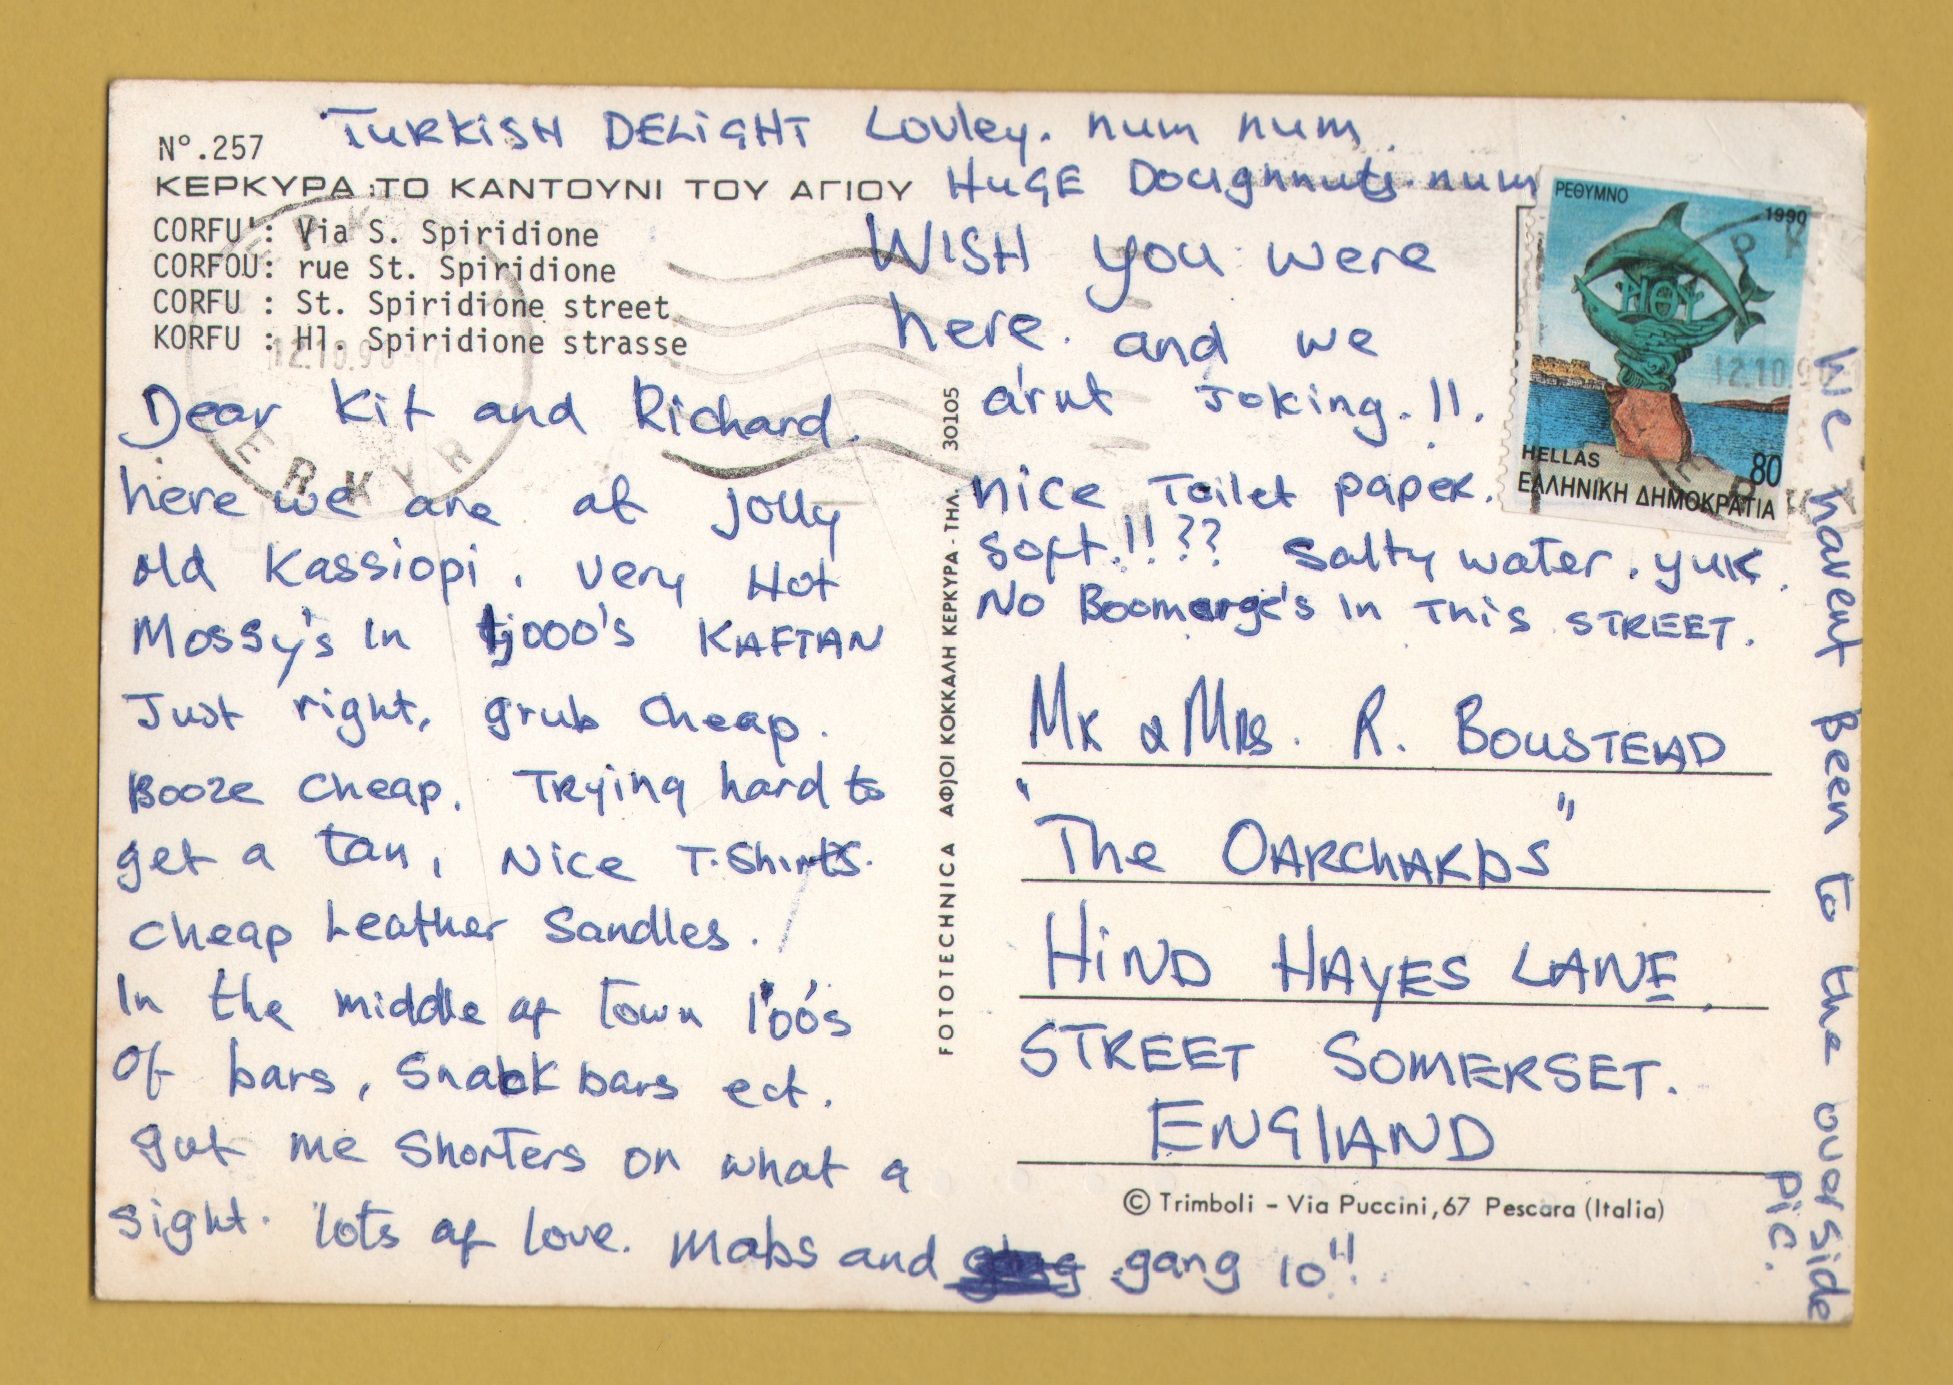 TURKISH DELIGHT Lovley. num num.
HUGE Doughnuts. num
Nº.257
ΚΕΡΚΥΡΑ :ΤΟ ΚΑΝΤΟΥΝΙ ΤΟΥ ΑΓΙΟΥ
CORFU': Via S. Spiridione
CORFOU: rue St. Spiridione
CORFU : St. Spiridione street
KORFU : Hl. Spiridione strasse
12.10.90
ΚΕΡΚΥΡ
Dear Kit and Richard.
here we are at jolly
old Kassiopi. very Hot
Mossy's In 1,000's KAFTAN
Just right, grub cheap.
Booze cheap. Trying hard to
get a tan, Nice T.Shirts.
cheap Leather Sandles.
In the middle of town 100's
of bars, Snack bars ect.
gut me Shorters on what a
sight. lots of love. Mabs and gang 10"!
WISH you were
here. and we
a'rnt Joking.!!.
nice Toilet paper.
soft.!!?? salty water. yuk.
No Boomerge's In This STREET.
FOTOTECHNICA ΑΦΙΟΙ ΚΟΚΚΑΛΗ ΚΕΡΚΥΡΑ - ΤΗΛ. 30105
ΡΕΘΥΜΝΟ
1990
ΝΘΥ
HELLAS
80
ΕΛΛΗΝΙΚΗ ΔΗΜΟΚΡΑΤΙΑ
12.10.9
Mr & Mrs. R. BOUSTEAD
"The OARCHARDS"
HIND HAYES LANE,
STREET SOMERSET.
ENGLAND
© Trimboli - Via Puccini, 67 Pescara (Italia)
We havent Been to the over side
Pic.